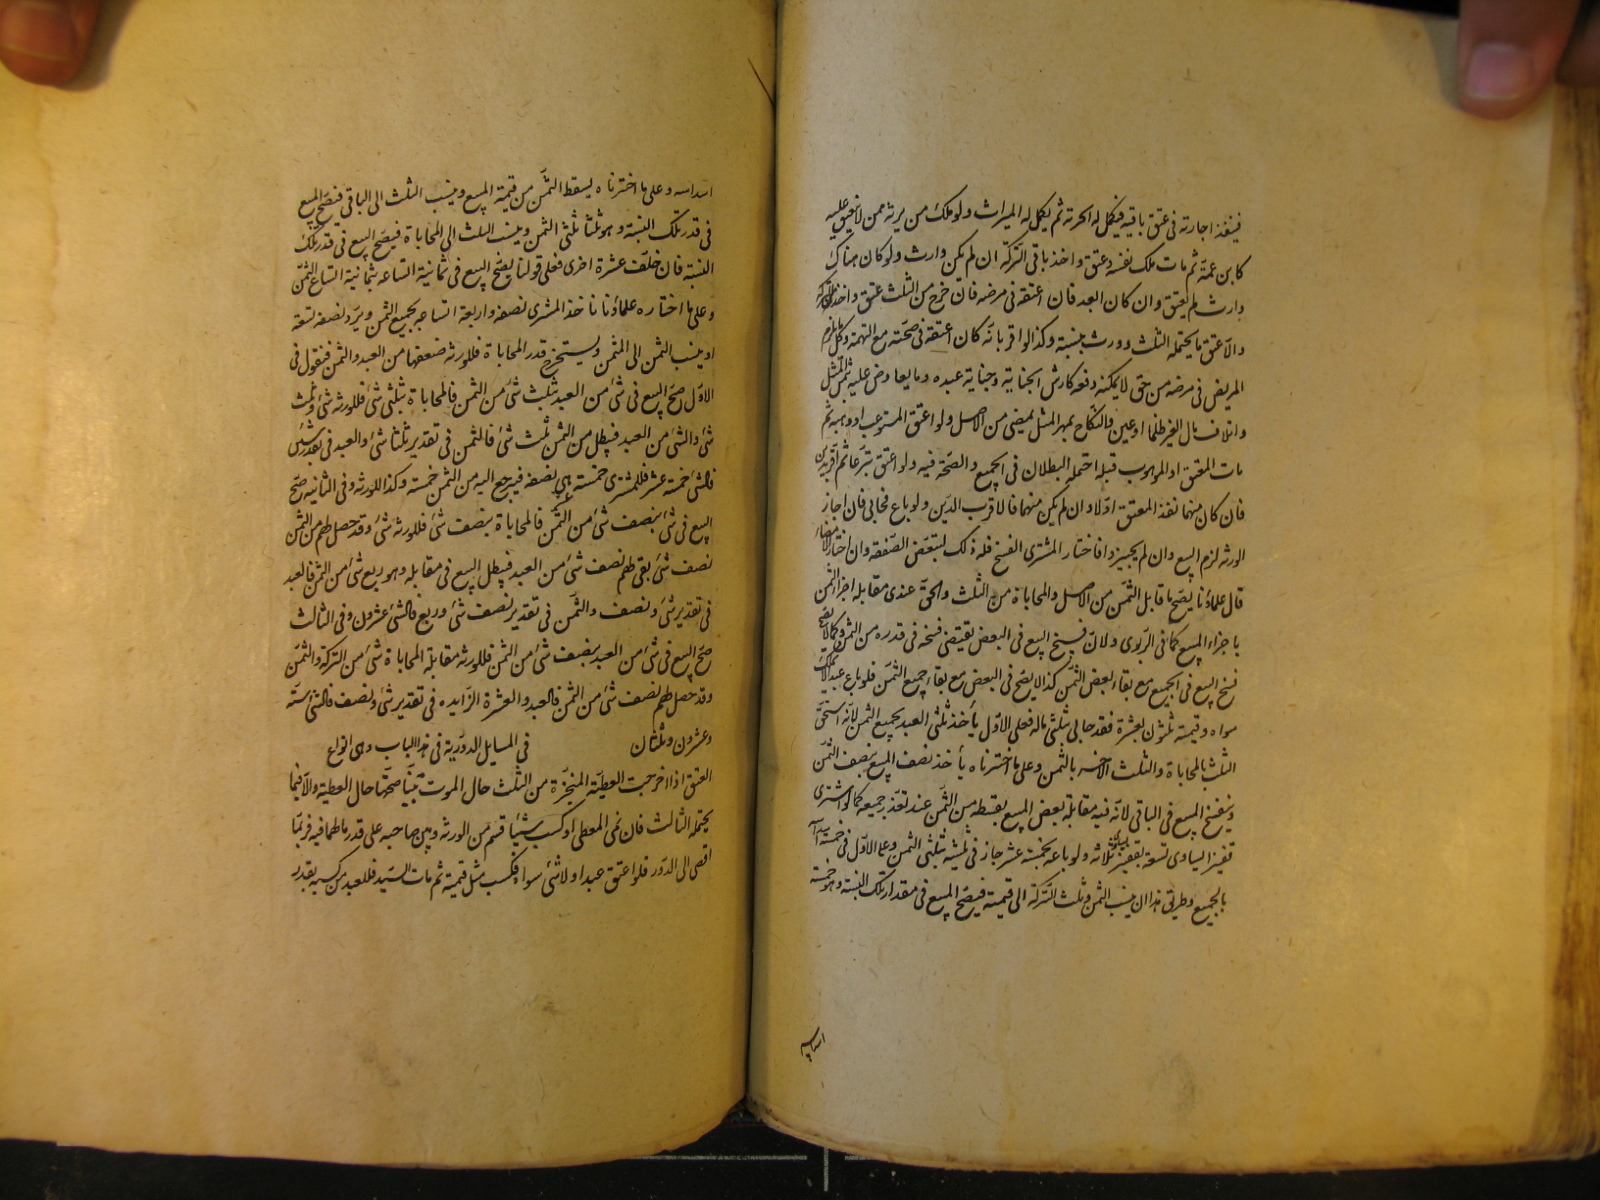 فينفذ اجارته فى عتق باقيه فيكمل له الحرية ثم يكمل له الميراث ولو ملك من يرثه ممن لا ينعتق عليه
كابن عمه ثم مات ملك نفسه وعتق واخذ باقى التركة ان لم يكن وارث ولو كان هناك
وارث لم يعتق وان كان العبد فان اعتقه فى مرضه فان خرج من الثلث عتق واخذ التركة
والا عتق ما يحتمله الثلث وورث بنسبته وكذا لو اقر بانه كان اعتقه فى صحته مع التهمة وكل ما يلزم
المريض فى مرضه من حق لا يمكنه دفعه كارش الجناية وجناية عبده وما يعاوض عليه بثمن المثل
واتلاف مال الغير ظلما او عين والنكاح بمهر المثل يمضى من الاصل ولو اعتق المستوعب او وهبه ثم
مات المعتق او الموهوب قبله احتمل البطلان فى الجميع والصحة فيه ولو اعتق تبرعا ثم اقر بدين
فان كان متهما نفذ المعتق اولا وان لم يكن متهما فالاقرب الدين ولو باع فحابى فان اجاز
الورثه لزم البيع وان لم يجيزوا فاختار المشترى الفسخ فله ذلك لتبعض الصفقه وان اختار الامضاء
قال علماؤنا يصح ما قابل الثمن من الاصل والمحاباة من الثلث والحق عندى مقابله اجزاء الثمن
باجزاء المبيع كما فى الربوى ولان فسخ البيع فى البعض يقتضى فسخه فى قدره من الثمن وكما لا يصح
فسخ البيع فى الجميع مع بقاء بعض الثمن كذا لا يصح فى البعض مع بقاء جميع الثمن فلو باع عبدا لا يملك
سواه وقيمته ثلثون بعشرة فقد حابى بثلثى ماله فعلى الاول يأخذ ثلثى العبد بجميع الثمن لانه استحق
الثلث بالمحاباة والثلث الآخر بالثمن وعلى ما اخترناه يأخذ نصف المبيع بنصف الثمن
وينفسخ البيع فى الباقى لانه فيه مقابلة بعض المبيع بقسطه من الثمن عند تعذر جميعه كما لو اشترى
قفيزا يساوى تسعة بقفيز يساوى ثلاثه ولو باعه بخمسة عشر جاز فى ثلثيه بثلثى الثمن وعلى الاول فى خمسة اسداسه
بالجميع وطريق هذا ان ينسب الثمن وثلث التركة الى قيمته فيصح البيع فى مقدار تلك النسبة وهو خمسة
اسداسه
اسداسه وعلى ما اخترناه يسقط الثمن من قيمة المبيع وينسب الثلث الى الباقى فيصح البيع
فى قدر تلك النسبة وهو ثلثا بثلثى الثمن وينسب الثلث الى المحاباة فيصح البيع فى قدر تلك
النسبة فان خلف عشرة اخرى فعلى قولنا يصح البيع فى ثمانية اتساعه بثمانية اتساع الثمن
وعلى ما اختاره علماؤنا ناخذ المشترى نصفه واربعة اتساعه بجميع الثمن ويرد نصف تسعه
او ينسب الثمن الى المثمن ويستخرج قدر المحاباة فللورثه ضعفها من العبد والثمن فنقول فى
الاول صح البيع فى شئ من العبد بثلث شئ من الثمن فالمحاباة بثلثى شئ فللورثه شئ وثلث
شئ والشئ من العبد فيبطل من الثمن ثلث شئ فالثمن فى تقدير ثلثا شئ والعبد فى تقدير شئين
فالشئ خمسة عشر فللمشترى خمسة عشر هى نصفه فيرجع اليه من الثمن خمسة وكذا للورثه وفى الثانيه صح
البيع فى شئ بنصف شئ من الثمن فالمحاباة بنصف شئ فللورثه شئ وقد حصل لهم من الثمن
نصف شئ بقى لهم نصف شئ من العبد فيبطل البيع فى مقابله وهو ربع شئ من الثمن فالعبد
فى تقدير شئ ونصف والثمن فى تقدير نصف شئ وربع فالشئ عشرون وفى الثالث
صح البيع فى شئ من العبد بنصف شئ من الثمن فللورثه مقابلة المحاباة شئ من التركة والثمن
وقد حصل لهم نصف شئ من الثمن فالعبد والعشرة الزايده فى تقدير شئ ونصف فالشئ ستة
وعشرون وثلثان فى المسايل الدورية فى هذا الباب وهى انواع
العتق اذا خرجت العطية المنجزة من الثلث حال الموت تبينا صحتها حال العطية والا فيما
يحتمله الثالث فان نمى المعطى او كسب شيئا قسم من الورثه وبين صاحبه على قدر ما لهما فيه فربما
افضى الى الدور فلو اعتق عبدا ولا شئ سواه فكسب مثل قيمته ثم مات السيد فللعبد من كسبه بقدر